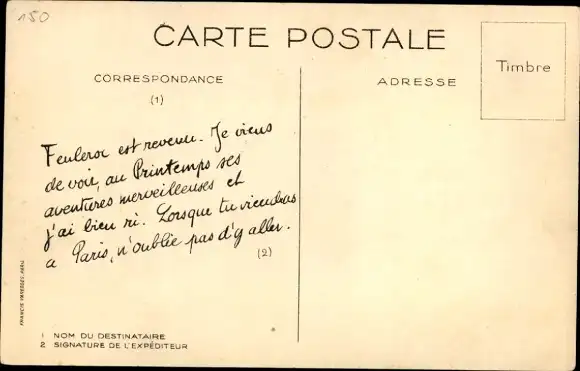 150
CARTE POSTALE
CORRESPONDANCE
(1)
ADRESSE
Timbre
Fenleroc est revenu. Je viens
de voir, au Printemps ses
aventures merveilleuses et
j'ai bien ri. Lorsque tu viendras
a Paris, n'oublie pas d'y aller.
(2)
1 NOM DU DESTINATAIRE
2 SIGNATURE DE L'EXPÉDITEUR